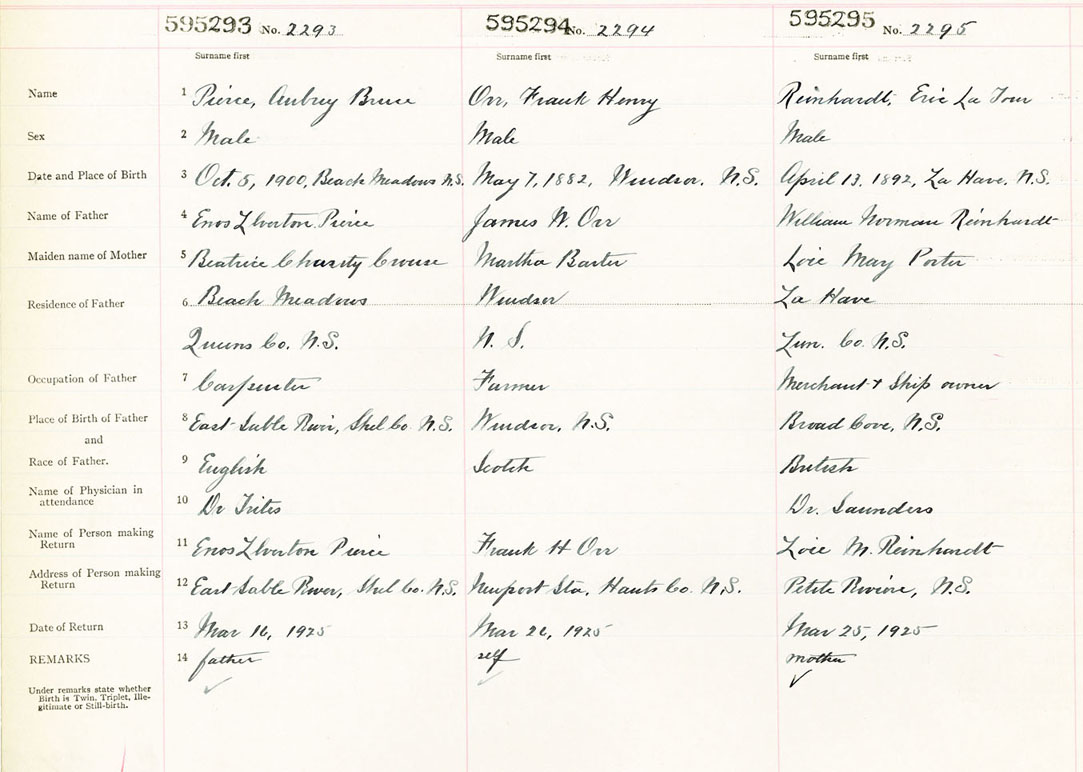 595293 No. 2293 595294 No. 2294 595295 No. 2295
Surname first Surname first Surname first
Name 1 Pierce, Aubrey Bruce Orr, Frank Henry Reinhardt, Eric La Tour
Sex 2 Male Male Male
Date and Place of Birth 3 Oct. 5, 1900, Beach Meadows N.S. May 7, 1882, Windsor, N.S. April 13, 1892, La Have, N.S.
Name of Father 4 Enos Pierce James W. Orr William Norman Reinhardt
Maiden name of Mother 5 Beatrice Charity Crouse Martha Barter May Porter
Residence of Father 6 Beach Meadows Windsor La Have
Queens Co. N.S. N. S. Lun. Co. N.S.
Occupation of Father 7 Carpenter Farmer Merchant & Ship owner
Place of Birth of Father 8 East Sable River, Shel Co. N.S. Windsor, N.S. Broad Cove, N.S.
and
Race of Father. 9 English Scotch British
Name of Physician in
attendance 10 Dr Trites Dr. Saunders
Name of Person making
Return 11 Enos Pierce Frank H Orr M. Reinhardt
Address of Person making
Return 12 East Sable River, Shel Co. N.S. Newport Sta, Hants Co. N.S. Petite Riviére, N.S.
Date of Return 13 Mar 16, 1925 Mar 26, 1925 Mar 25, 1925
REMARKS 14 father self mother
Under remarks state whether
Birth is Twin, Triplet, Ille-
gitimate or Still-birth.